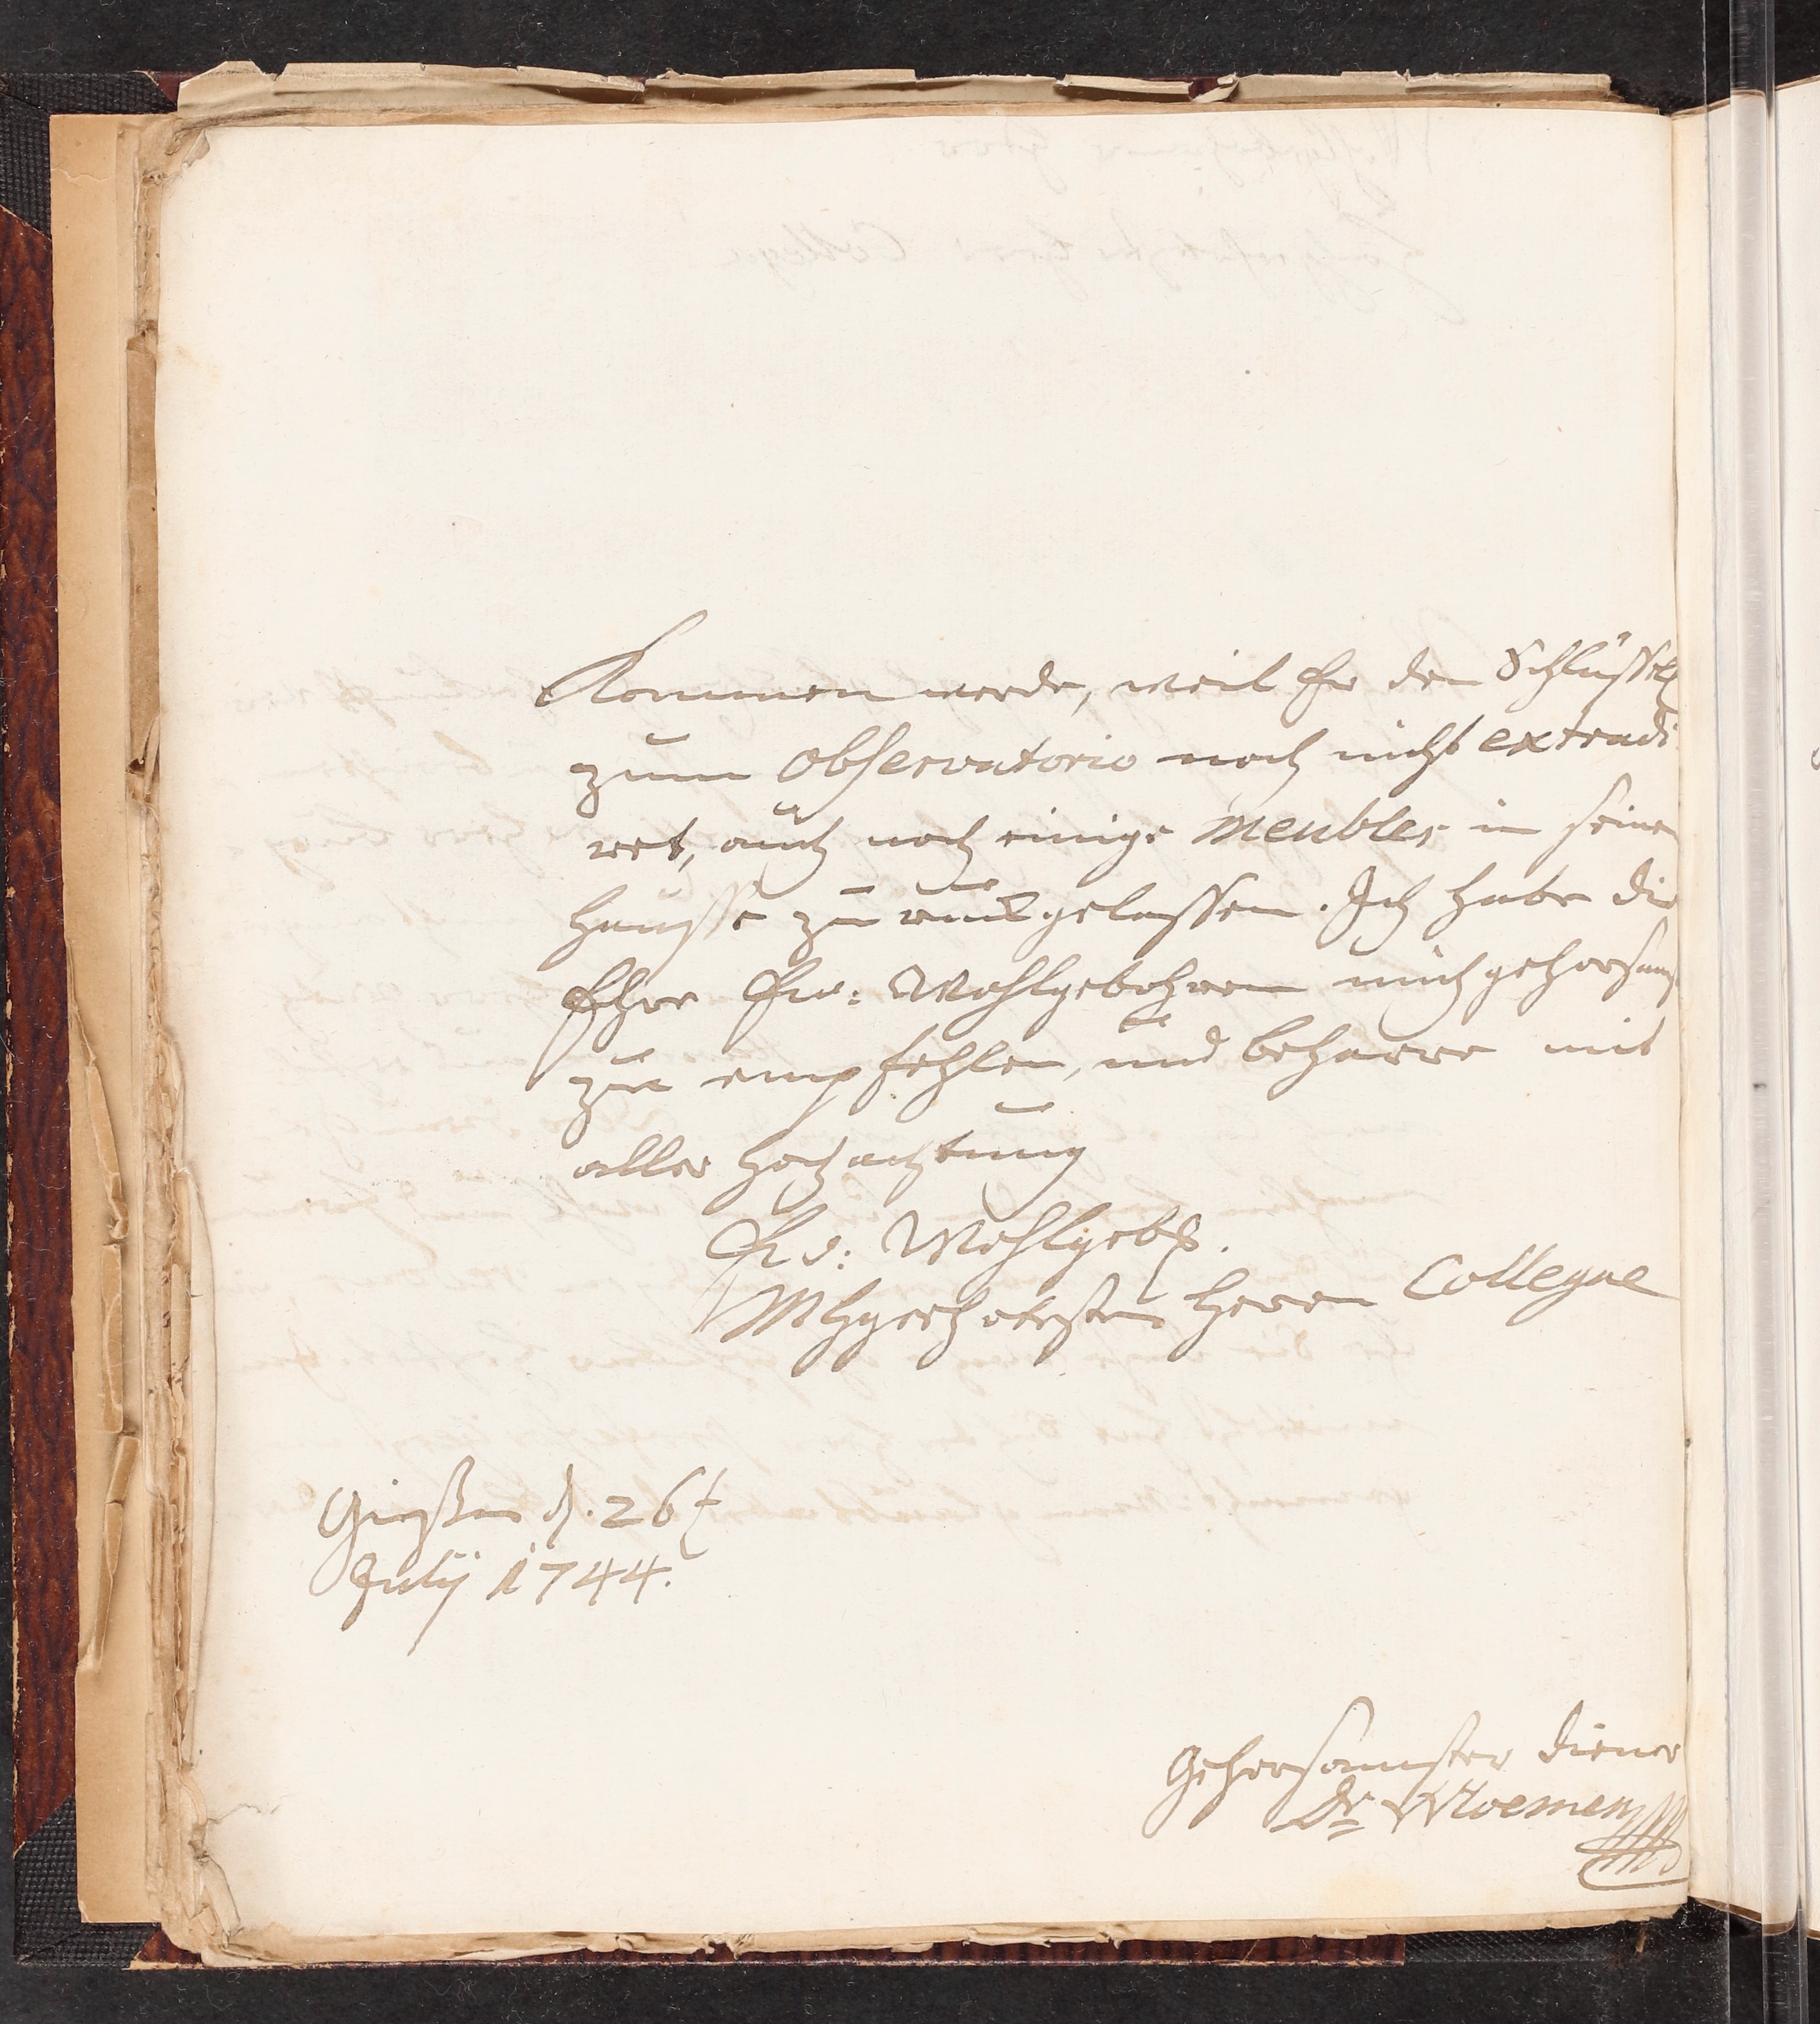 Kommen werde, weil Er den Schlüssel
zum observatorio noch nicht extradi
ret, auch noch einige meubles in seinem
Hausse zu rück gelassen. Ich habe die
Ehre Ew: Wohlgebohren mich gehorsamst
zu empfehlen, und beharre mit
aller Hochachtung
Ew: Wohlgeb.
MHgeehrtesten Herrn Collegae
Gießen d. 26t
Julij 1744.
Gehorsamster Diener
Dr